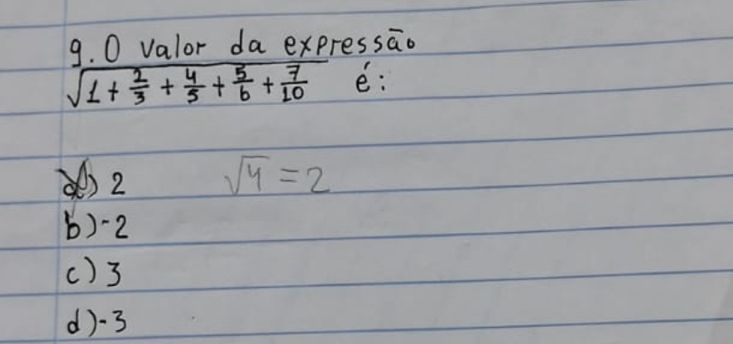 9. O valor da expressão
√1 + 2/3 + 4/5 + 5/6 + 7/10 é:
a) 2 √4 = 2
b) -2
c) 3
d) -3